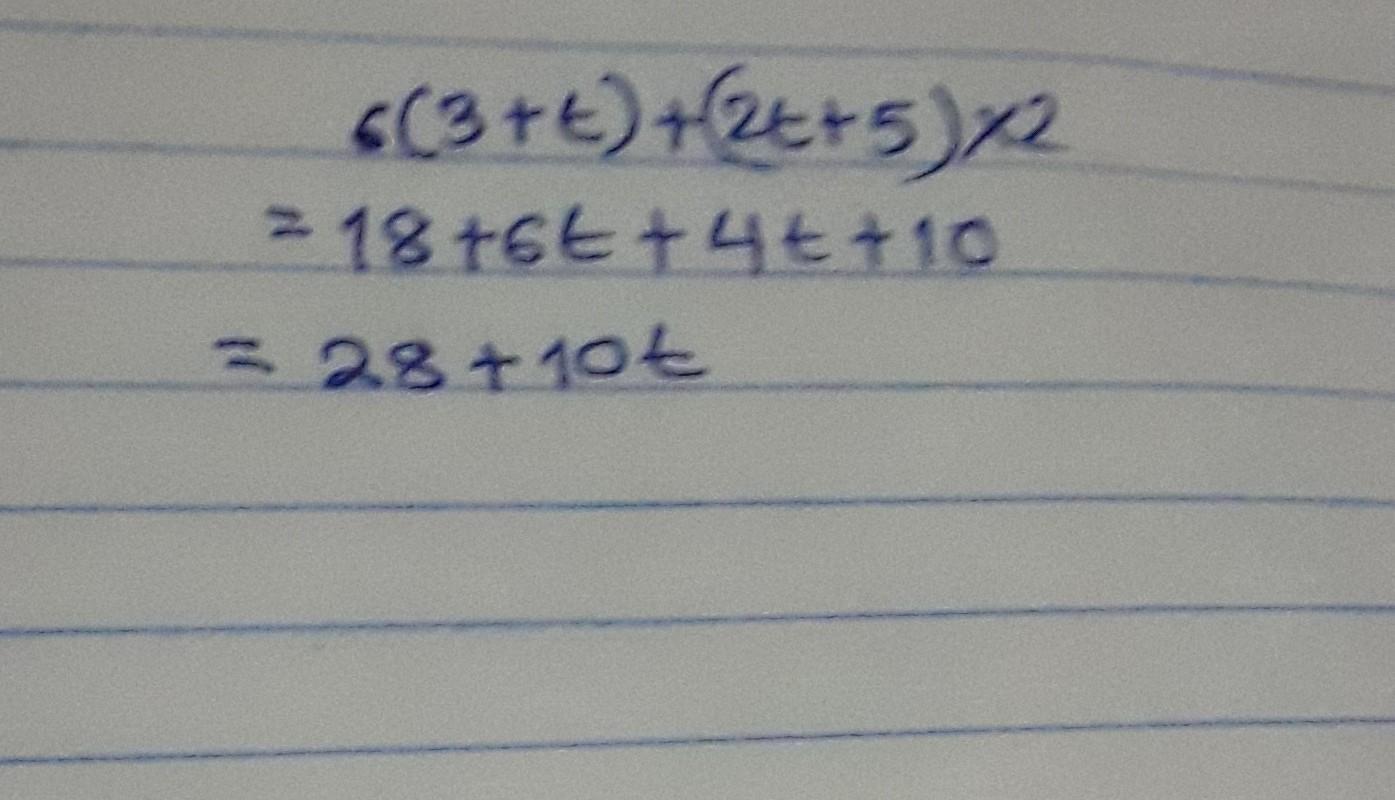 6(3+t)+(2t+5)×2
=18+6t+4t+10
= 28+10t